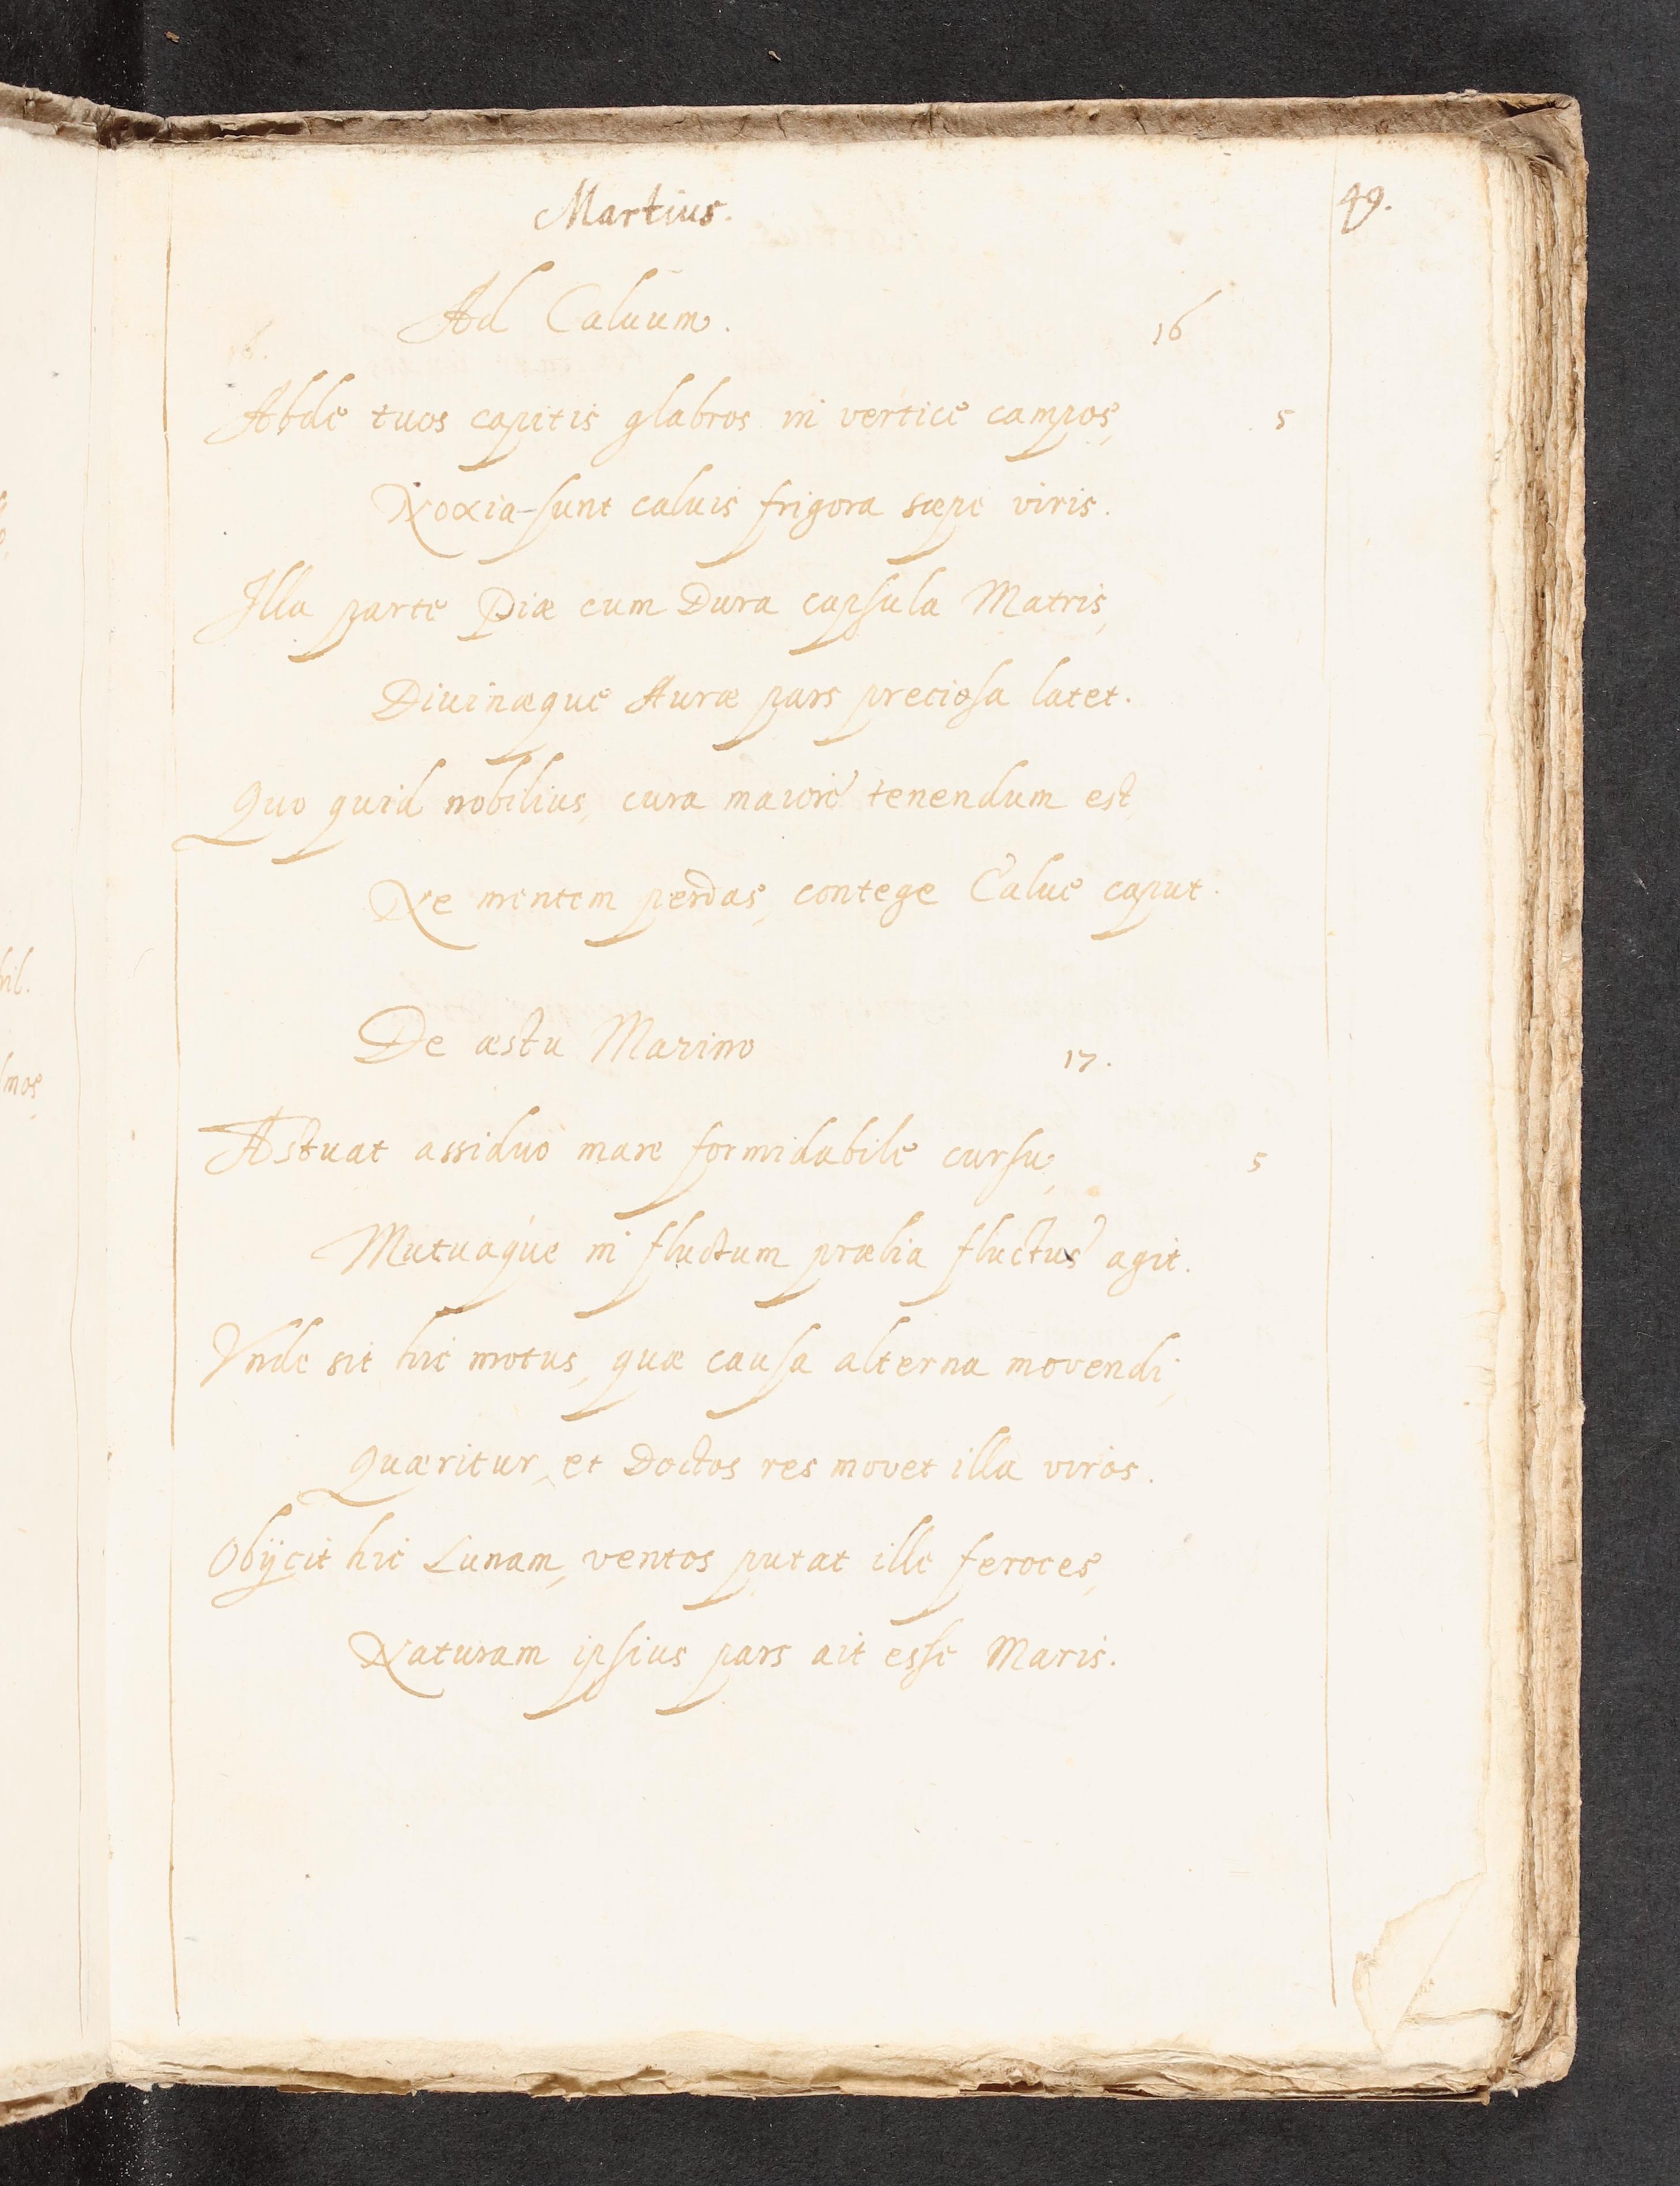 Martius. 49.
Ad Caluum. 16
Abde tuos capitis glabros in vertice campos, 5
Noxia sunt caluis frigora sæpe viris.
Illa parte Piæ cum Dura capsula Matris,
Diuinæque Auræ pars preciosa latet.
Quo quid nobilius, cura maiore tenendum est,
Ne mentem perdas, contege Calue caput.
De æstu Marino 17.
Æstuat assiduo mare formidabile cursu, 5
Mutuaque in fluctum prælia fluctus agit.
Vnde sit hic motus, quæ causa alterna movendi;
Quæritur, et Doctos res movet illa viros.
Obijcit hic Lunam, ventos putat ille feroces,
Naturam ipsius pars ait esse Maris.